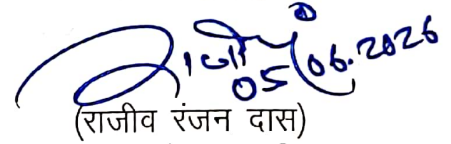 05/06.2026
(राजीव रंजन दास)